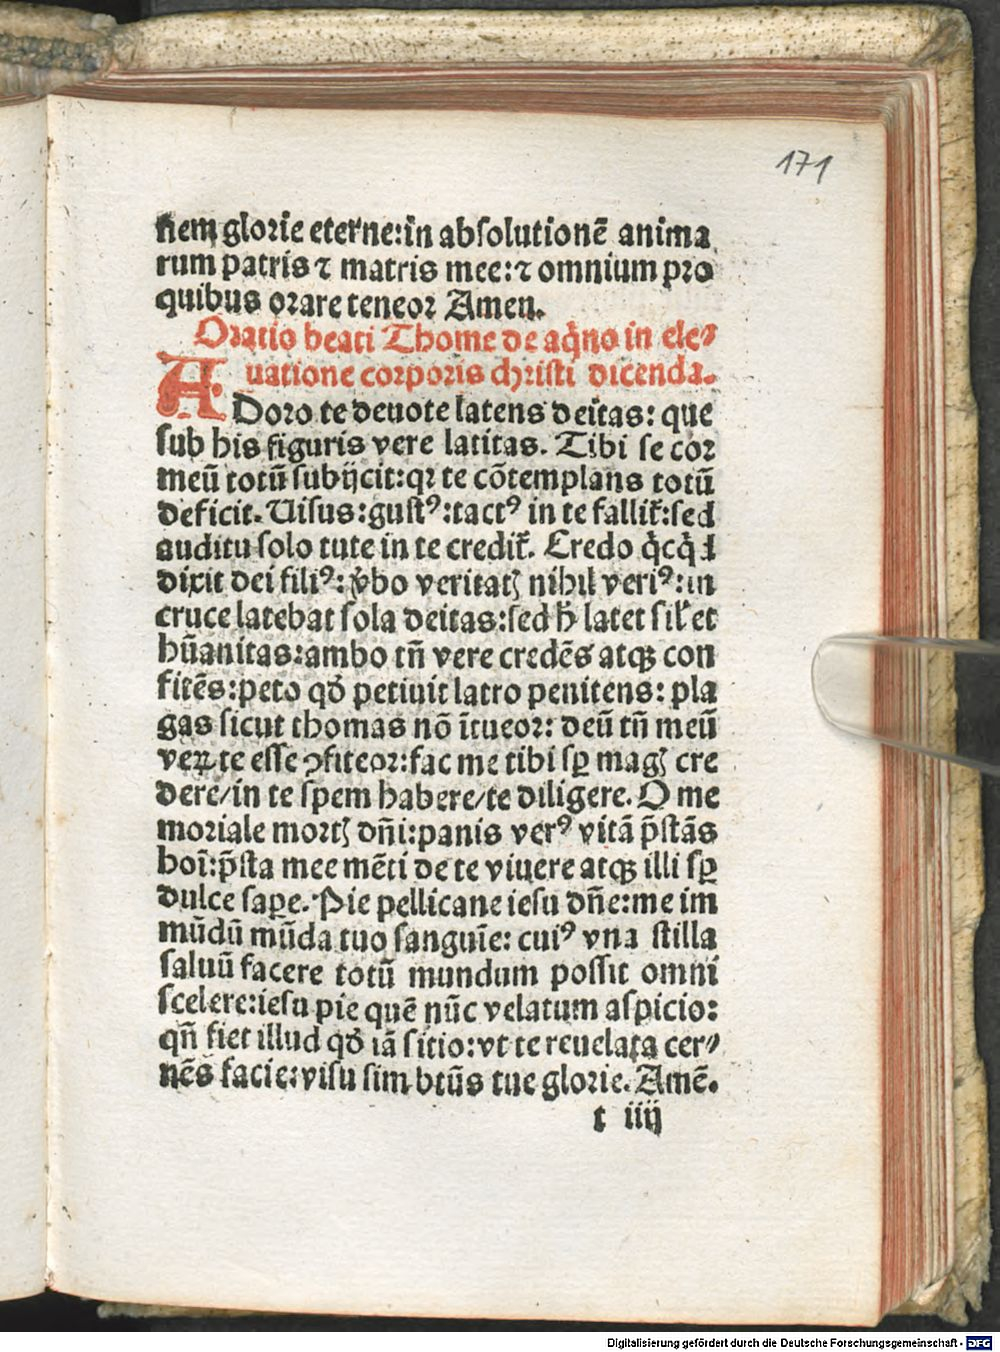 171
nem glorie eterne:in absolutionē anima
rum patris ⁊ matris mee:⁊ omnium pro
quibus orare teneor Amen.
Oratio beati Thome de aq̃no in ele⸗
uatione corporis christi dicenda.
ADoro te deuote latens deitas: que
sub his figuris vere latitas. Tibi se cor
meū totū subijcit:qꝛ te cōtemplans totū
deficit. Uisus:gustꝰ:tactꝰ in te fallit̃:sed
auditu solo tute in te credit̃. Credo q̇cq̇d
dixit dei filiꝰ: v̾bo veritatꝭ nihil veriꝰ:in
cruce latebat sola deitas:sed h̄ latet sil̃ et
hūanitas:ambo tn̄ vere credēs atqꝫ con
fitēs:peto qđ petiuit latro penitens: pla
gas sicut thomas nō ītueor: deū tn̄ meū
veꝝ te esse ꝯfiteor:fac me tibi sꝑ magꝭ cre
dere/in te spem habere/te diligere. O me
moriale mortꝭ dn̄i:panis verꝰ vitā p̄stās
hoī:p̄sta mee mēti de te viuere atqꝫ illi sꝑ
dulce saꝑe. Pie pellicane iesu dn̄e:me im
mūdū mūda tuo sanguīe: cuiꝰ vna stilla
saluū facere totū mundum possit omni
scelere:iesu pie quē nūc velatum aspicio:
qn̄ fiet illud qđ iā sitio:vt te reuelata cer⸗
nēs facie:visu sim btūs tue glorie. Amē.
t iiij
Digitalisierung gefördert durch die Deutsche Forschungsgemeinschaft - DFG